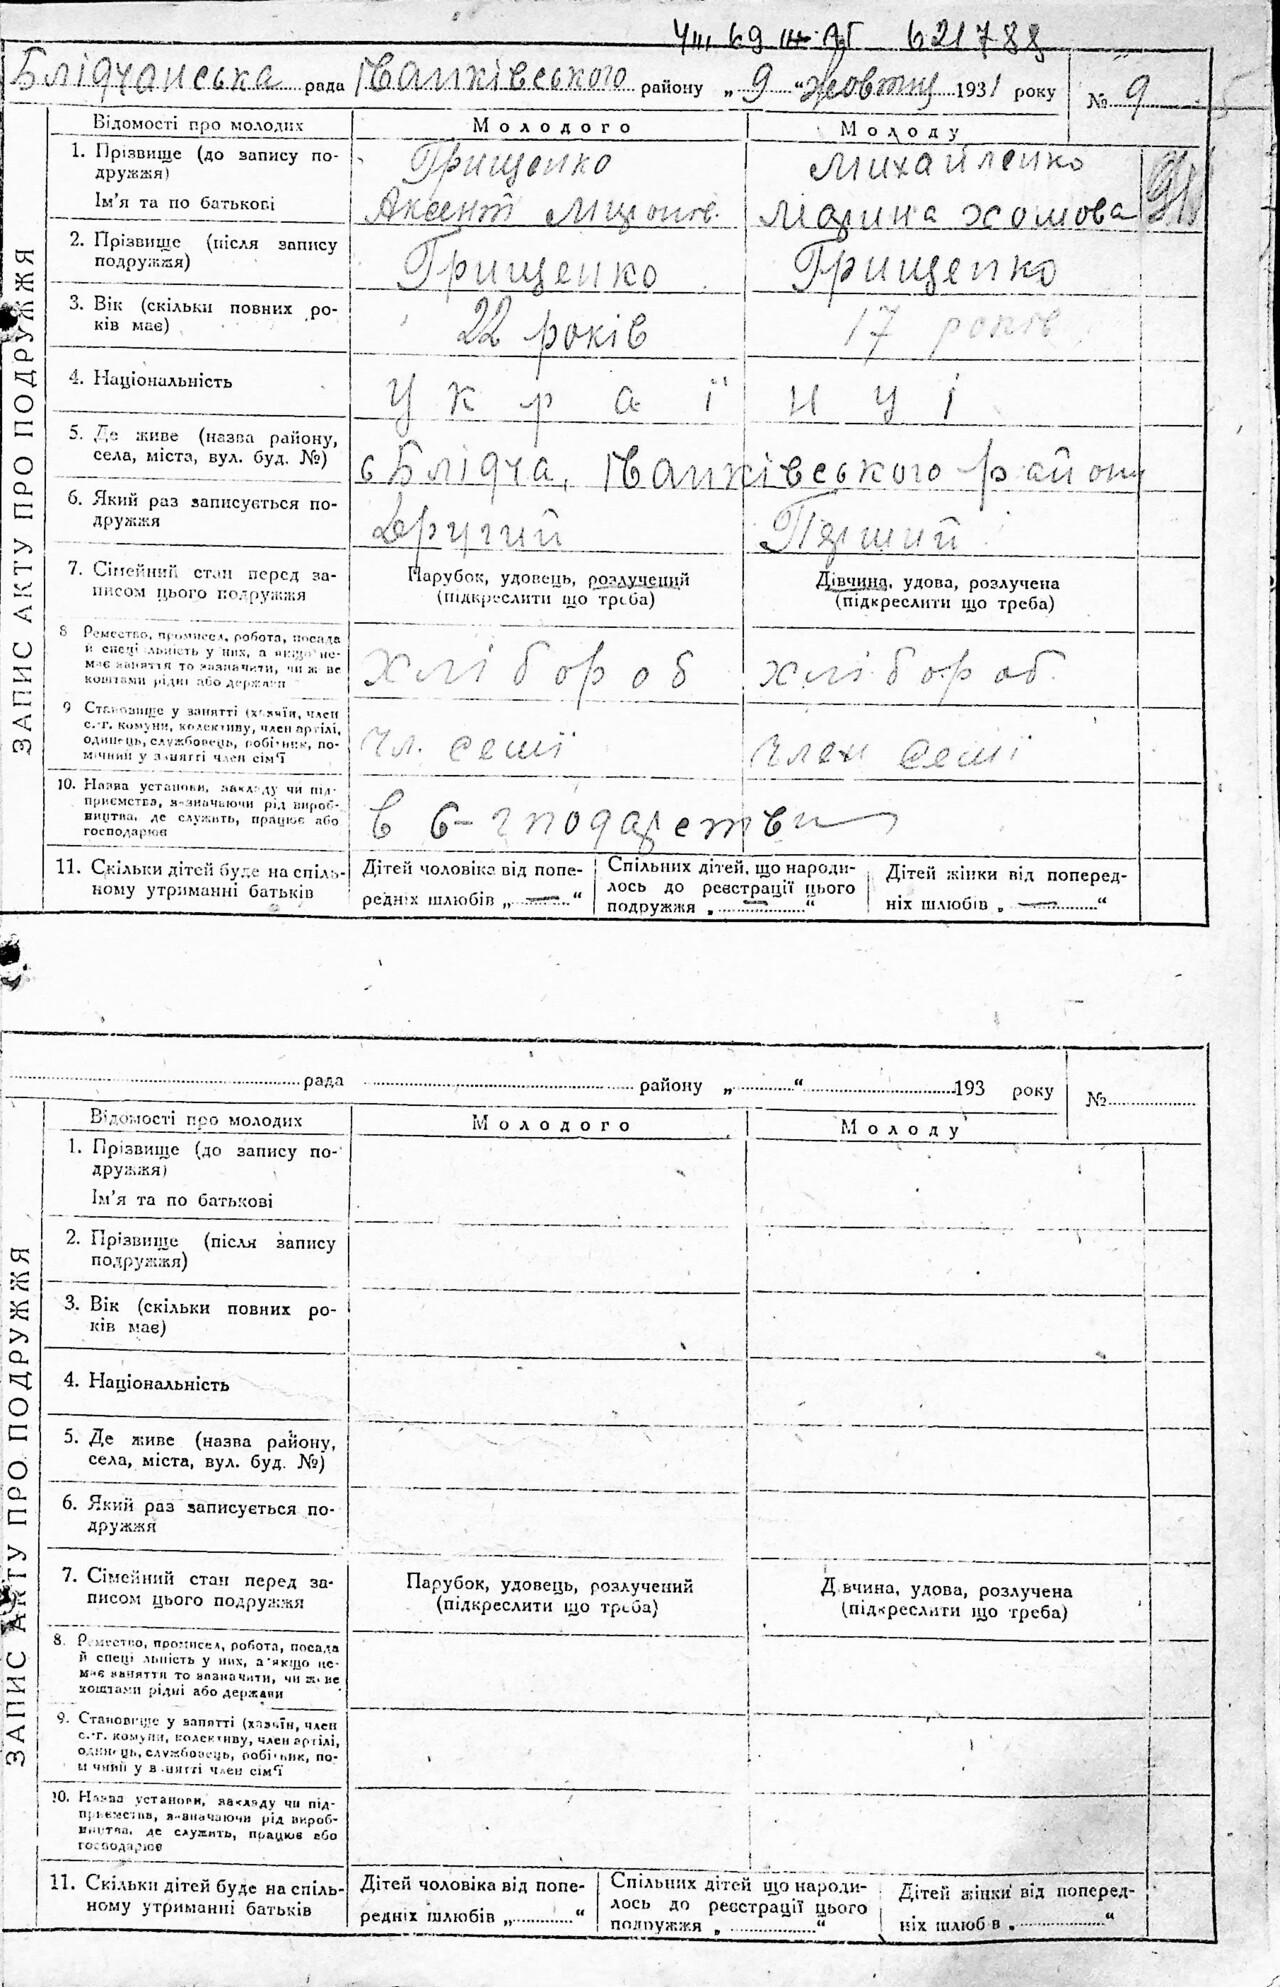 621788
Блідчанська рада Іванківського району „ 9 “ жовтня 1931 року № 9
ЗАПИС АКТУ ПРО ПОДРУЖЖЯ
Відомості про молодих
Молодого
Молоду
1. Прізвище (до запису по-
дружжя)
Ім'я та по батькові
Грищенко
Аксент Миронов.
Михайленко
Марина Хомова
2. Прізвище (після запису
подружжя)
Грищенко
Грищенко
3. Вік (скільки повних ро-
ків має)
22 років
17 років
4. Національність
Українці
5. Де живе (назва району,
села, міста, вул. буд. №)
с Блідча, Іванківського району
6. Який раз записується по-
дружжя
Другий
Перший
7. Сімейний стан перед за-
писом цього подружжя
Парубок, удовець, розлучений
(підкреслити що треба)
Дівчина, удова, розлучена
(підкреслити що треба)
8 Ремество, промисел, робота, посада
й спеці льність у них, а якщо не-
має заняття то зазначити, чи ж ве
коштами рідні або держави
Хлібороб
Хлібороб.
9 Становище у занятті (хазяїн, член
с.-г. комуни, колективу, член артілі,
одинець, службовець, робітник, по-
мічний у занятті член сім'ї
Чл. семї
Член семї
10. Назва установи, закладу чи під-
приємства, зазначаючи рід вироб-
ництва, де служить, працює або
господарює
в с-господарстві
11. Скільки дітей буде на спіль-
ному утриманні батьків
Дітей чоловіка від попе-
редніх шлюбів „ — “
Спільних дітей, що народи-
лось до реєстрації цього
подружжя „ — “
Дітей жінки від поперед-
ніх шлюбів „ — “
рада району „ “ 193 року №
ЗАПИС АКТУ ПРО ПОДРУЖЖЯ
Відомості про молодих
Молодого
Молоду
1. Прізвище (до запису по-
дружжя)
Ім'я та по батькові
2. Прізвище (після запису
подружжя)
3. Вік (скільки повних ро-
ків має)
4. Національність
5. Де живе (назва району,
села, міста, вул. буд. №)
6. Який раз записується по-
дружжя
7. Сімейний стан перед за-
писом цього подружжя
Парубок, удовець, розлучений
(підкреслити що треба)
Дівчина, удова, розлучена
(підкреслити що треба)
8. Ремество, промисел, робота, посада
й спеці льність у них, а якщо не-
має заняття то зазначити, чи ж ве
коштами рідні або держави
9. Становище у занятті (хазяїн, член
с.-г. комуни, колективу, член артілі,
одинець, службовець, робітник, по-
мічний у занятті член сім'ї
10. Назва установи, закладу чи під-
приємства, зазначаючи рід вироб-
ництва, де служить, працює або
господарює
11. Скільки дітей буде на спіль-
ному утриманні батьків
Дітей чоловіка від попе-
редніх шлюбів „ “
Спільних дітей що народи-
лось до реєстрації цього
подружжя „ “
Дітей жінки від поперед-
ніх шлюбів „ “